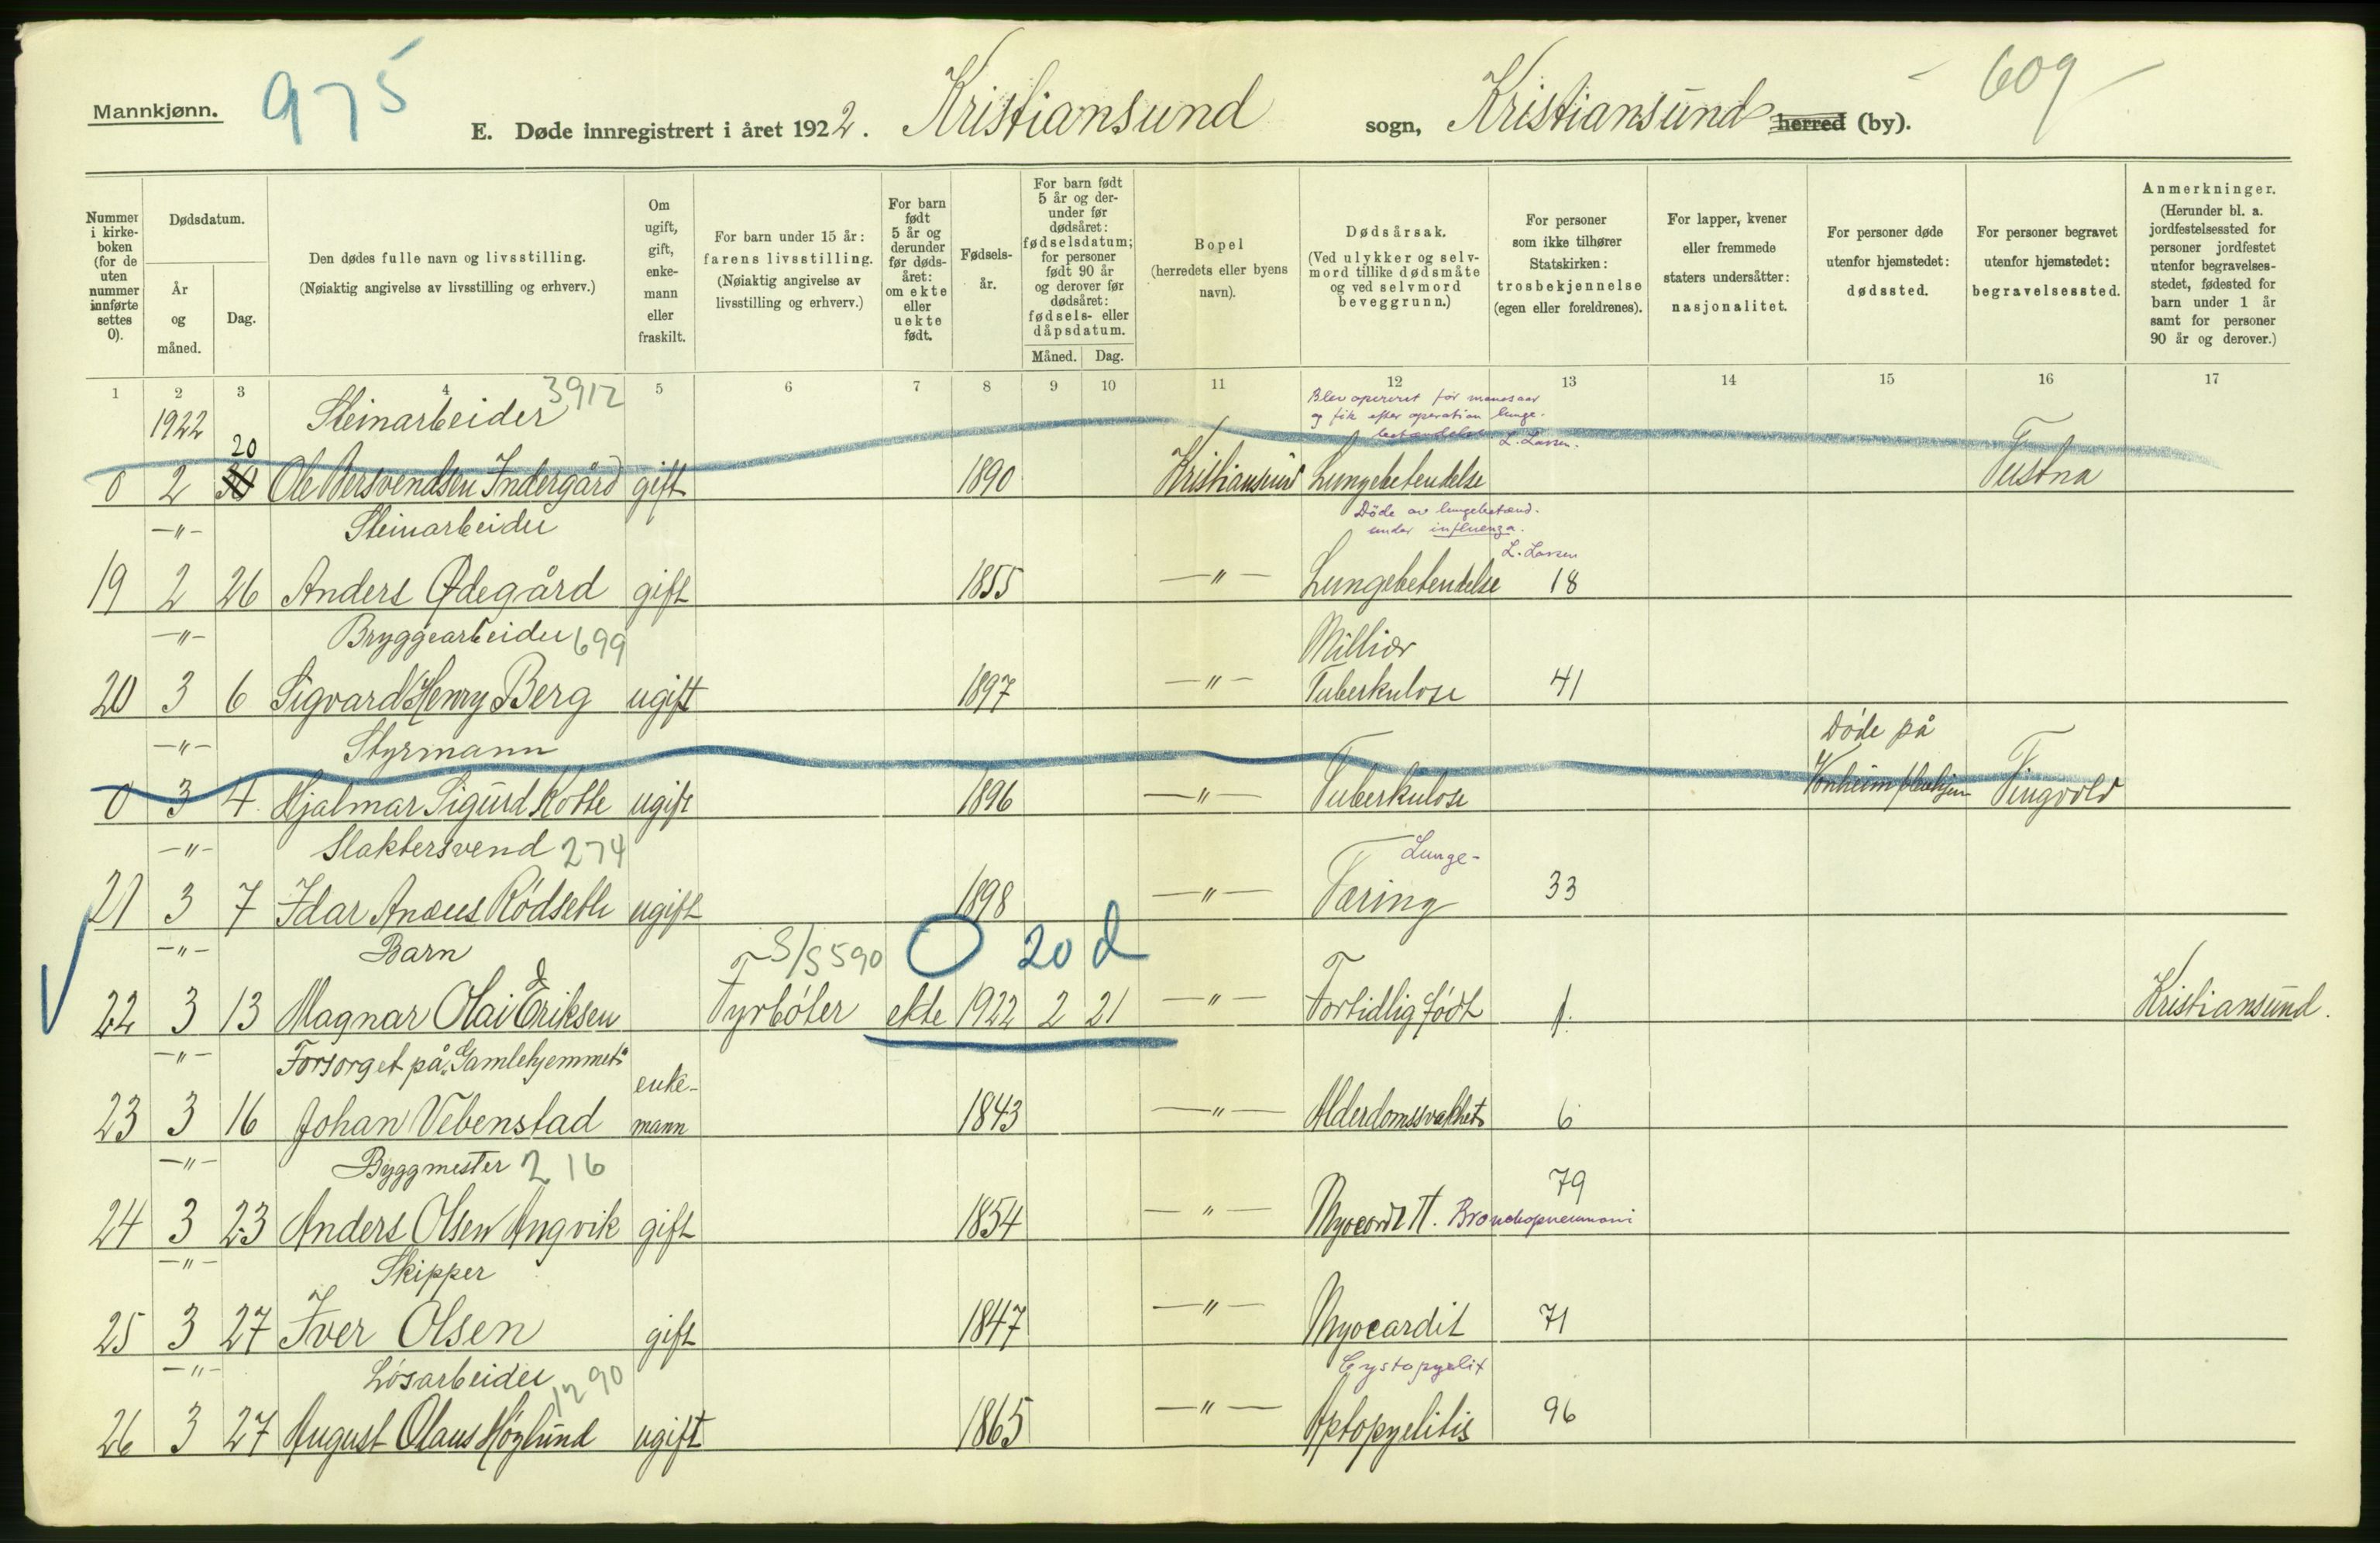 Mannkjønn.
975
E. Døde innregistrert i året 1922. Kristiansund sogn, Kristiansund herred (by).
- 609 -
Nummer i kirkeboken (for de uten nummer innførte settes 0).
Dødsdatum.
År og måned.
Dag.
Den dødes fulle navn og livsstilling.
(Nøiaktig angivelse av livsstilling og erhverv.)
Om ugift, gift, enkemann eller fraskilt.
For barn under 15 år: farens livsstilling.
(Nøiaktig angivelse av livsstilling og erhverv.)
For barn født 5 år og derunder før dødsåret: om ekte eller uekte født.
Fødselsår.
For barn født 5 år og derunder før dødsåret: fødselsdatum; for personer født 90 år og derover før dødsåret: fødsels- eller dåpsdatum.
Måned. Dag.
Bopel
(herredets eller byens navn).
Dødsårsak.
(Ved ulykker og selvmord tillike dødsmåte og ved selvmord beveggrunn.)
For personer som ikke tilhører Statskirken: trosbekjennelse (egen eller foreldrenes).
For lapper, kvener eller fremmede staters undersåtter: nasjonalitet.
For personer døde utenfor hjemstedet: dødssted.
For personer begravet utenfor hjemstedet: begravelsessted.
Anmerkninger.
(Herunder bl. a. jordfestelsessted for personer jordfestet utenfor begravelsesstedet, fødested for barn under 1 år samt for personer 90 år og derover.)
1 2 3 4 5 6 7 8 9 10 11 12 13 14 15 16 17
1922 Steinarbeider 3912 Blev opereret for
og fik efter operation lunge-
L. Lassen.
20
0 2 Ole Bersvendsen Indergård gift 1890 Kristiansund Lungebetendelse Tustna
-"- Steinarbeider Döde av lungebetænd.
under influenza.
L. Lassen
19 2 26 Anders Ødegård gift 1855 -"- Lungebetendelse 18
-"- Bryggearbeider 699 Milliær
20 3 6 Sigvard Henry Berg ugift 1897 -"- Tuberkulose 41
-"- Styrmann Døde på
0 3 4 Hjalmar Sigurd Kolle ugift 1896 -"- Tuberkulose Vonheim pleiehjem Tingvold
-"- Slaktersvend 274 Lunge-
21 3 7 Idar Anæus Rødseth ugift 1898 -"- Tæring 33
-"- Barn S/S 590 0 20 d
22 3 13 Magnar Olai Eriksen Fyrbøter ekte 1922 2 21 -"- Fortidlig født 1. Kristiansund.
-"- Forsørget på "Gamlehjemmet"
23 3 16 Johan Vebenstad enke-mann 1843 -"- Alderdomssvakhet 6
-"- Byggmester 216 79
24 3 23 Anders Olsen Angvik gift 1854 -"- Myocardit. Bronchopneumoni
-"- Skipper
25 3 27 Iver Olsen gift 1847 -"- Myocardit 71
-"- Løsarbeider 1290 Cystopyelit
26 3 27 August Olaus Höglund ugift 1865 -"- 96